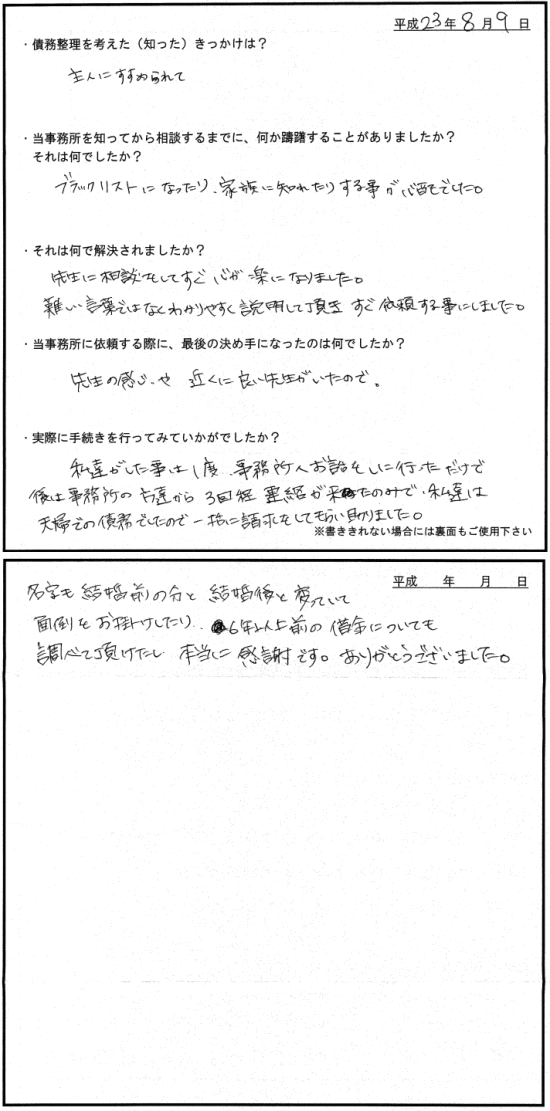 平成23年8月9日
・債務整理を考えた（知った）きっかけは？
主人にすすめられて
・当事務所を知ってから相談するまでに、何か躊躇することがありましたか？
それは何でしたか？
ブラックリストになったり、家族に知れたりする事が心配でした。
・それは何で解決されましたか？
先生に相談をしてすぐ心が楽になりました。
難しい言葉ではなくわかりやすく説明して頂き すぐ依頼する事にしました。
・当事務所に依頼する際に、最後の決め手になったのは何でしたか？
先生の感じや 近くに良い先生がいたので。
・実際に手続きを行ってみていかがでしたか？
私達がした事は1度、事務所へお話をしに行っただけで
後は事務所の方達から3回程電話が来たのみで、私達は
夫婦での債務でしたので一括に請求をしてもらい助かりました。
※書ききれない場合には裏面もご使用下さい
平成　年　月　日
名字も結婚前の分と結婚後と変っていて
面倒をお掛けしたり、6年以上前の借金についても
調べて頂けたし 本当に感謝です。ありがとうございました。